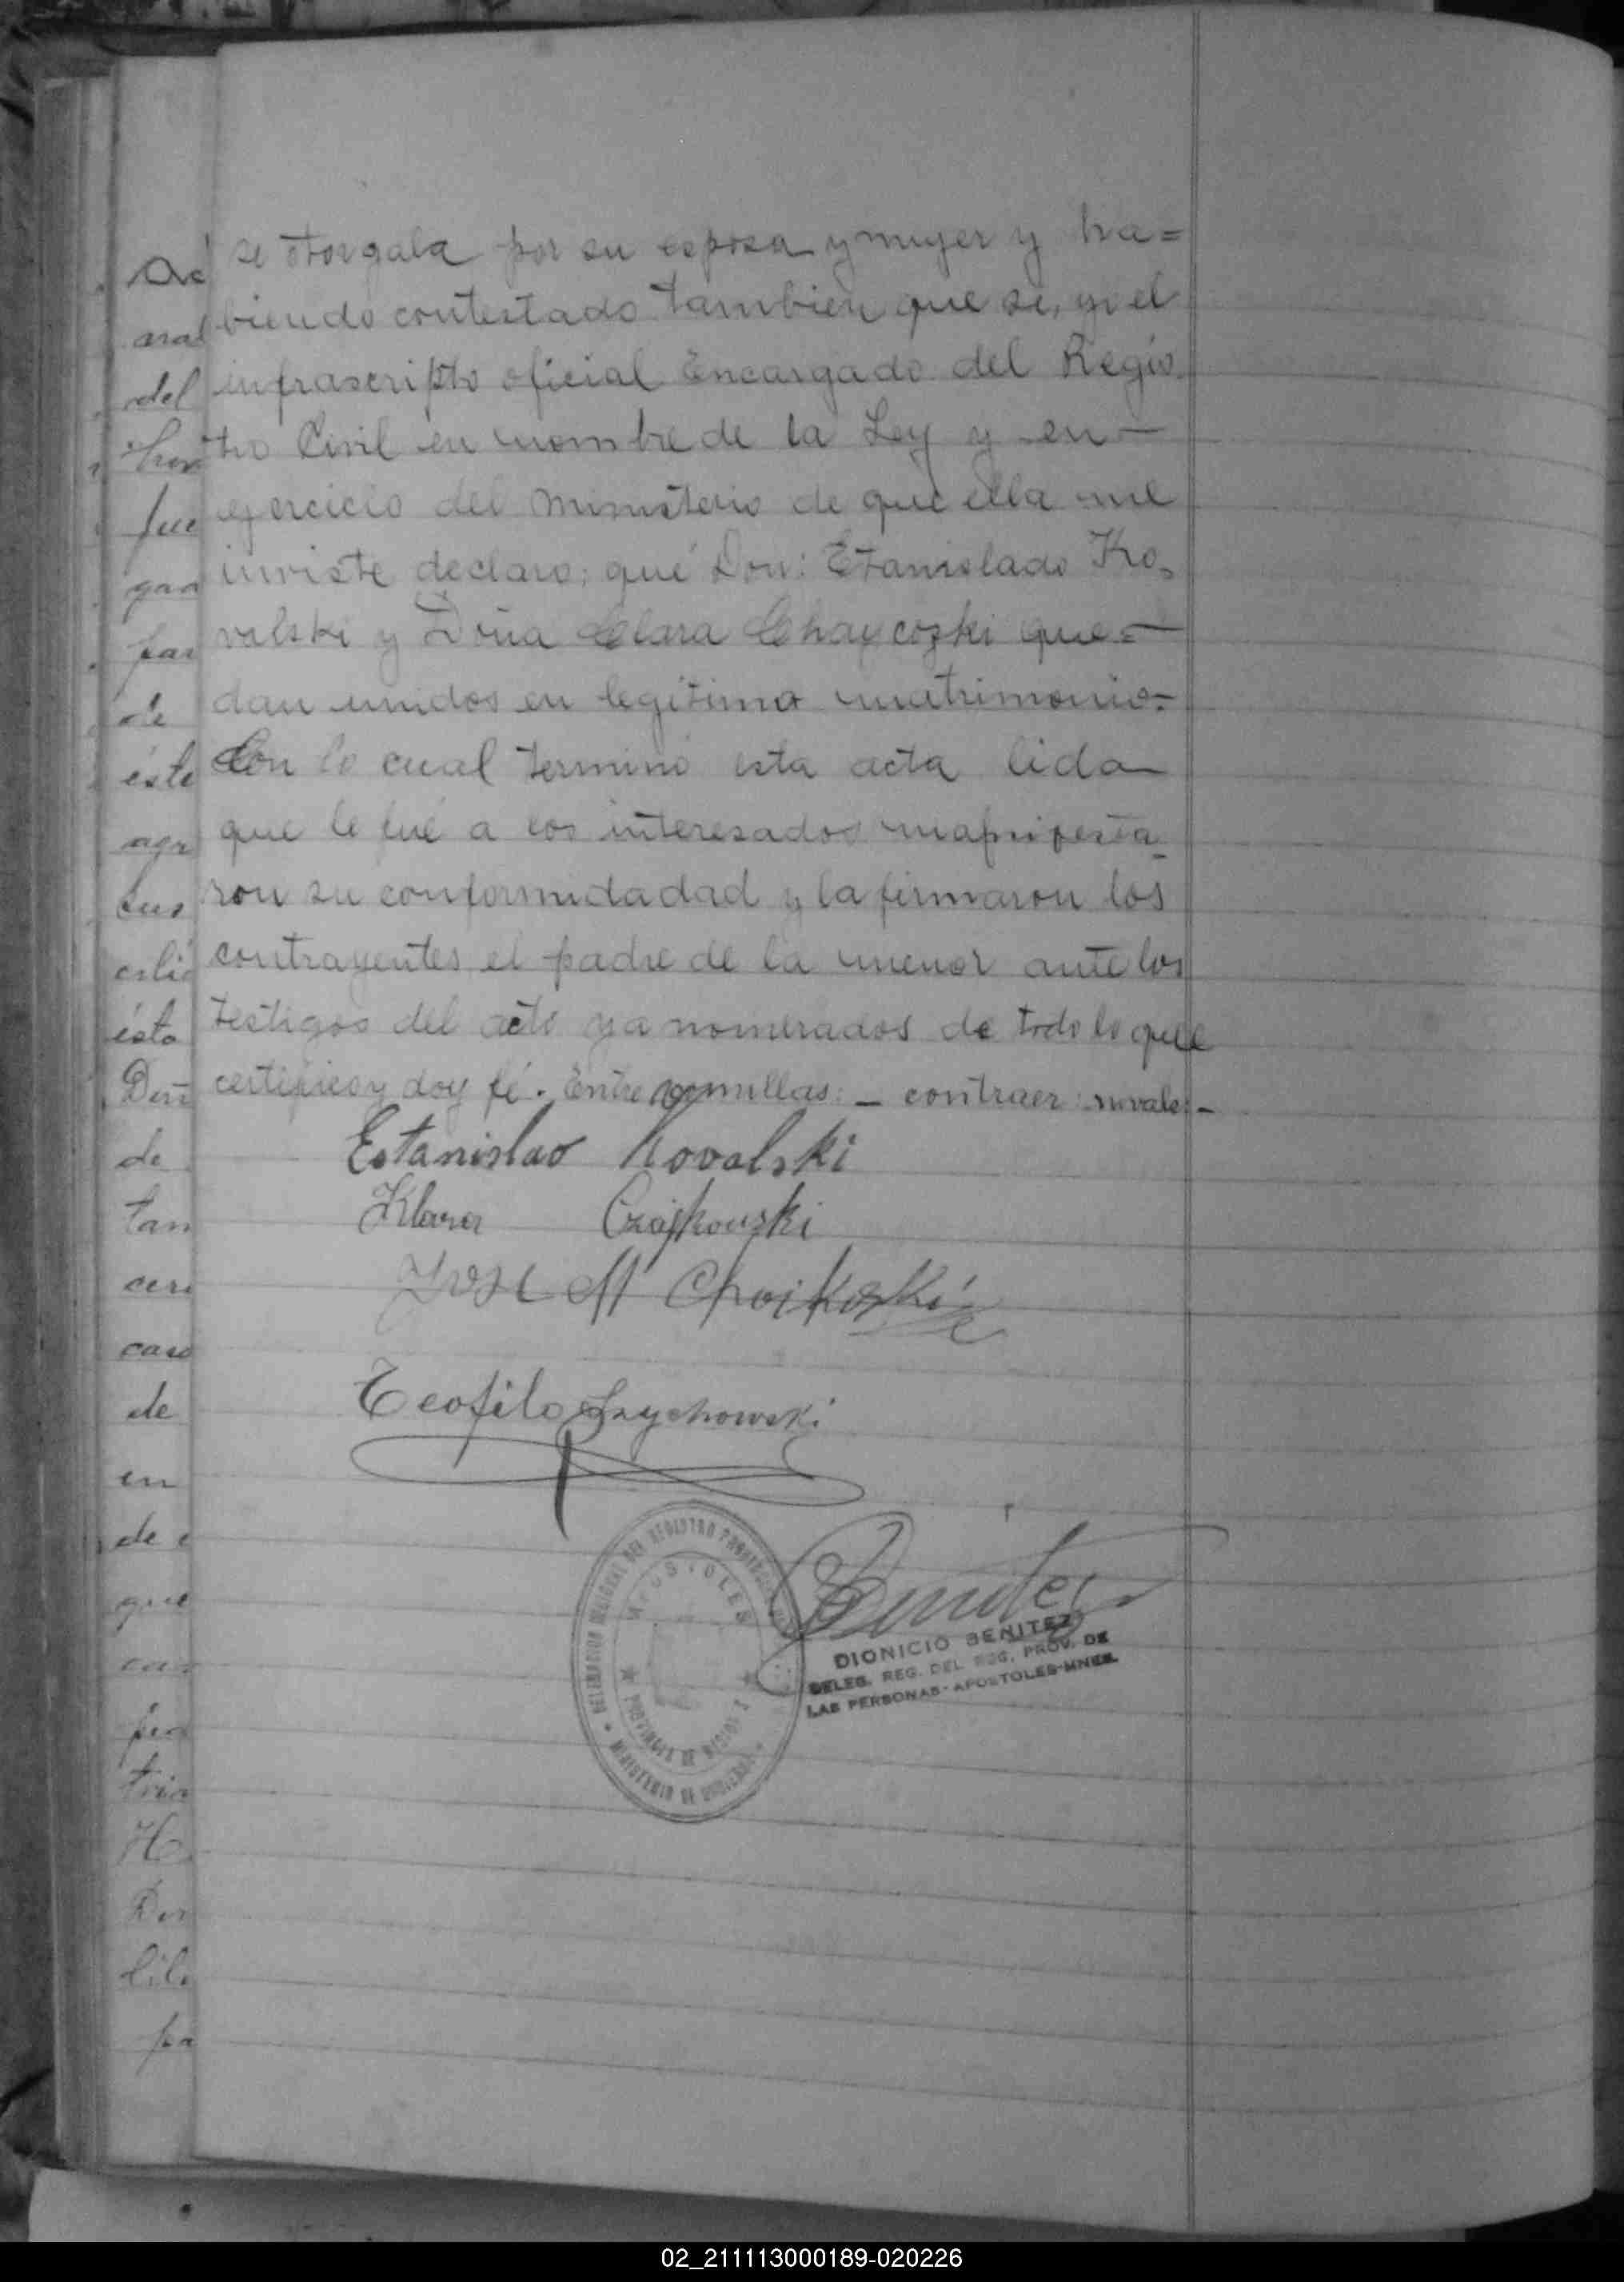 se otorgaba por su esposa y mujer y ha=
biendo contestado tambien que si, yo el
infrascripto oficial Encargado del Regis
tro Civil en nombre de la Ley y en—
ejercicio del Ministerio de que ella me
inviste declaro; que Don: Etanislado Ko,
valski y Doña Clara Chaycoski que=
dan unidos en legítimo matrimonio.-
Con lo cual terminó esta acta lida
que le fué a los interesados manifesta
ron su conformidadad y la firmaron los
contrayentes el padre de la menor ante los
testigos del acto ya nombrados de todo lo que
certifico y doy fé. Entre comillas: — contraer: no vale:-
Estanislao Kovalski
Klara Czajkowski
José M Choikoski
Teofilo Szychowski
Benitez
DIONICIO BENITEZ
DELEG. REG. DEL REG. PROV. DE
LAS PERSONAS - APOSTOLES-MNES.
DELEGACION REGIONAL DEL REGISTRO PROVINCIAL
APOSTOLES
PROVINCIA DE MISIONES
MINISTERIO DE GOBIERNO
del
fue
gan
par
de
éste
agr
sus
ésta
de
tan
caso
de
en
de
que
pa
02_211113000189-020226